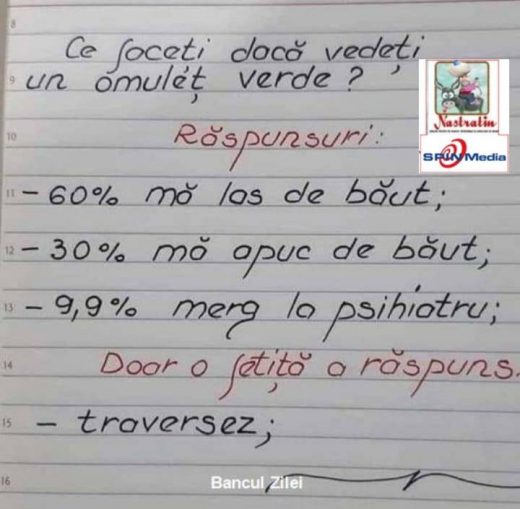 8
Ce faceți dacă vedeți
9 un omuleț verde ?
Nastratin
SPIN Media
10 Răspunsuri:
11 – 60% mă las de băut;
12 – 30% mă apuc de băut;
13 – 9,9% merg la psihiatru;
14 Doar o fetiță a răspuns.
15 – traversez;
16
Bancul Zilei